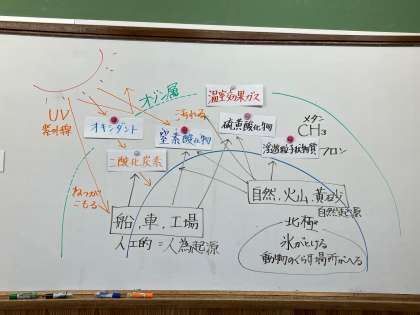 オゾン層
温室効果ガス
UV
紫外線
オキシダント
汚れる
窒素酸化物
硫黄酸化物
メタン
CH3
浮遊粒子状物質
フロン
二酸化炭素
ねつが
こもる
船、車、工場
人工的=人為起源
自然、火山、黄砂
自然起源
北極
氷がとける
動物のくらす場所がへる